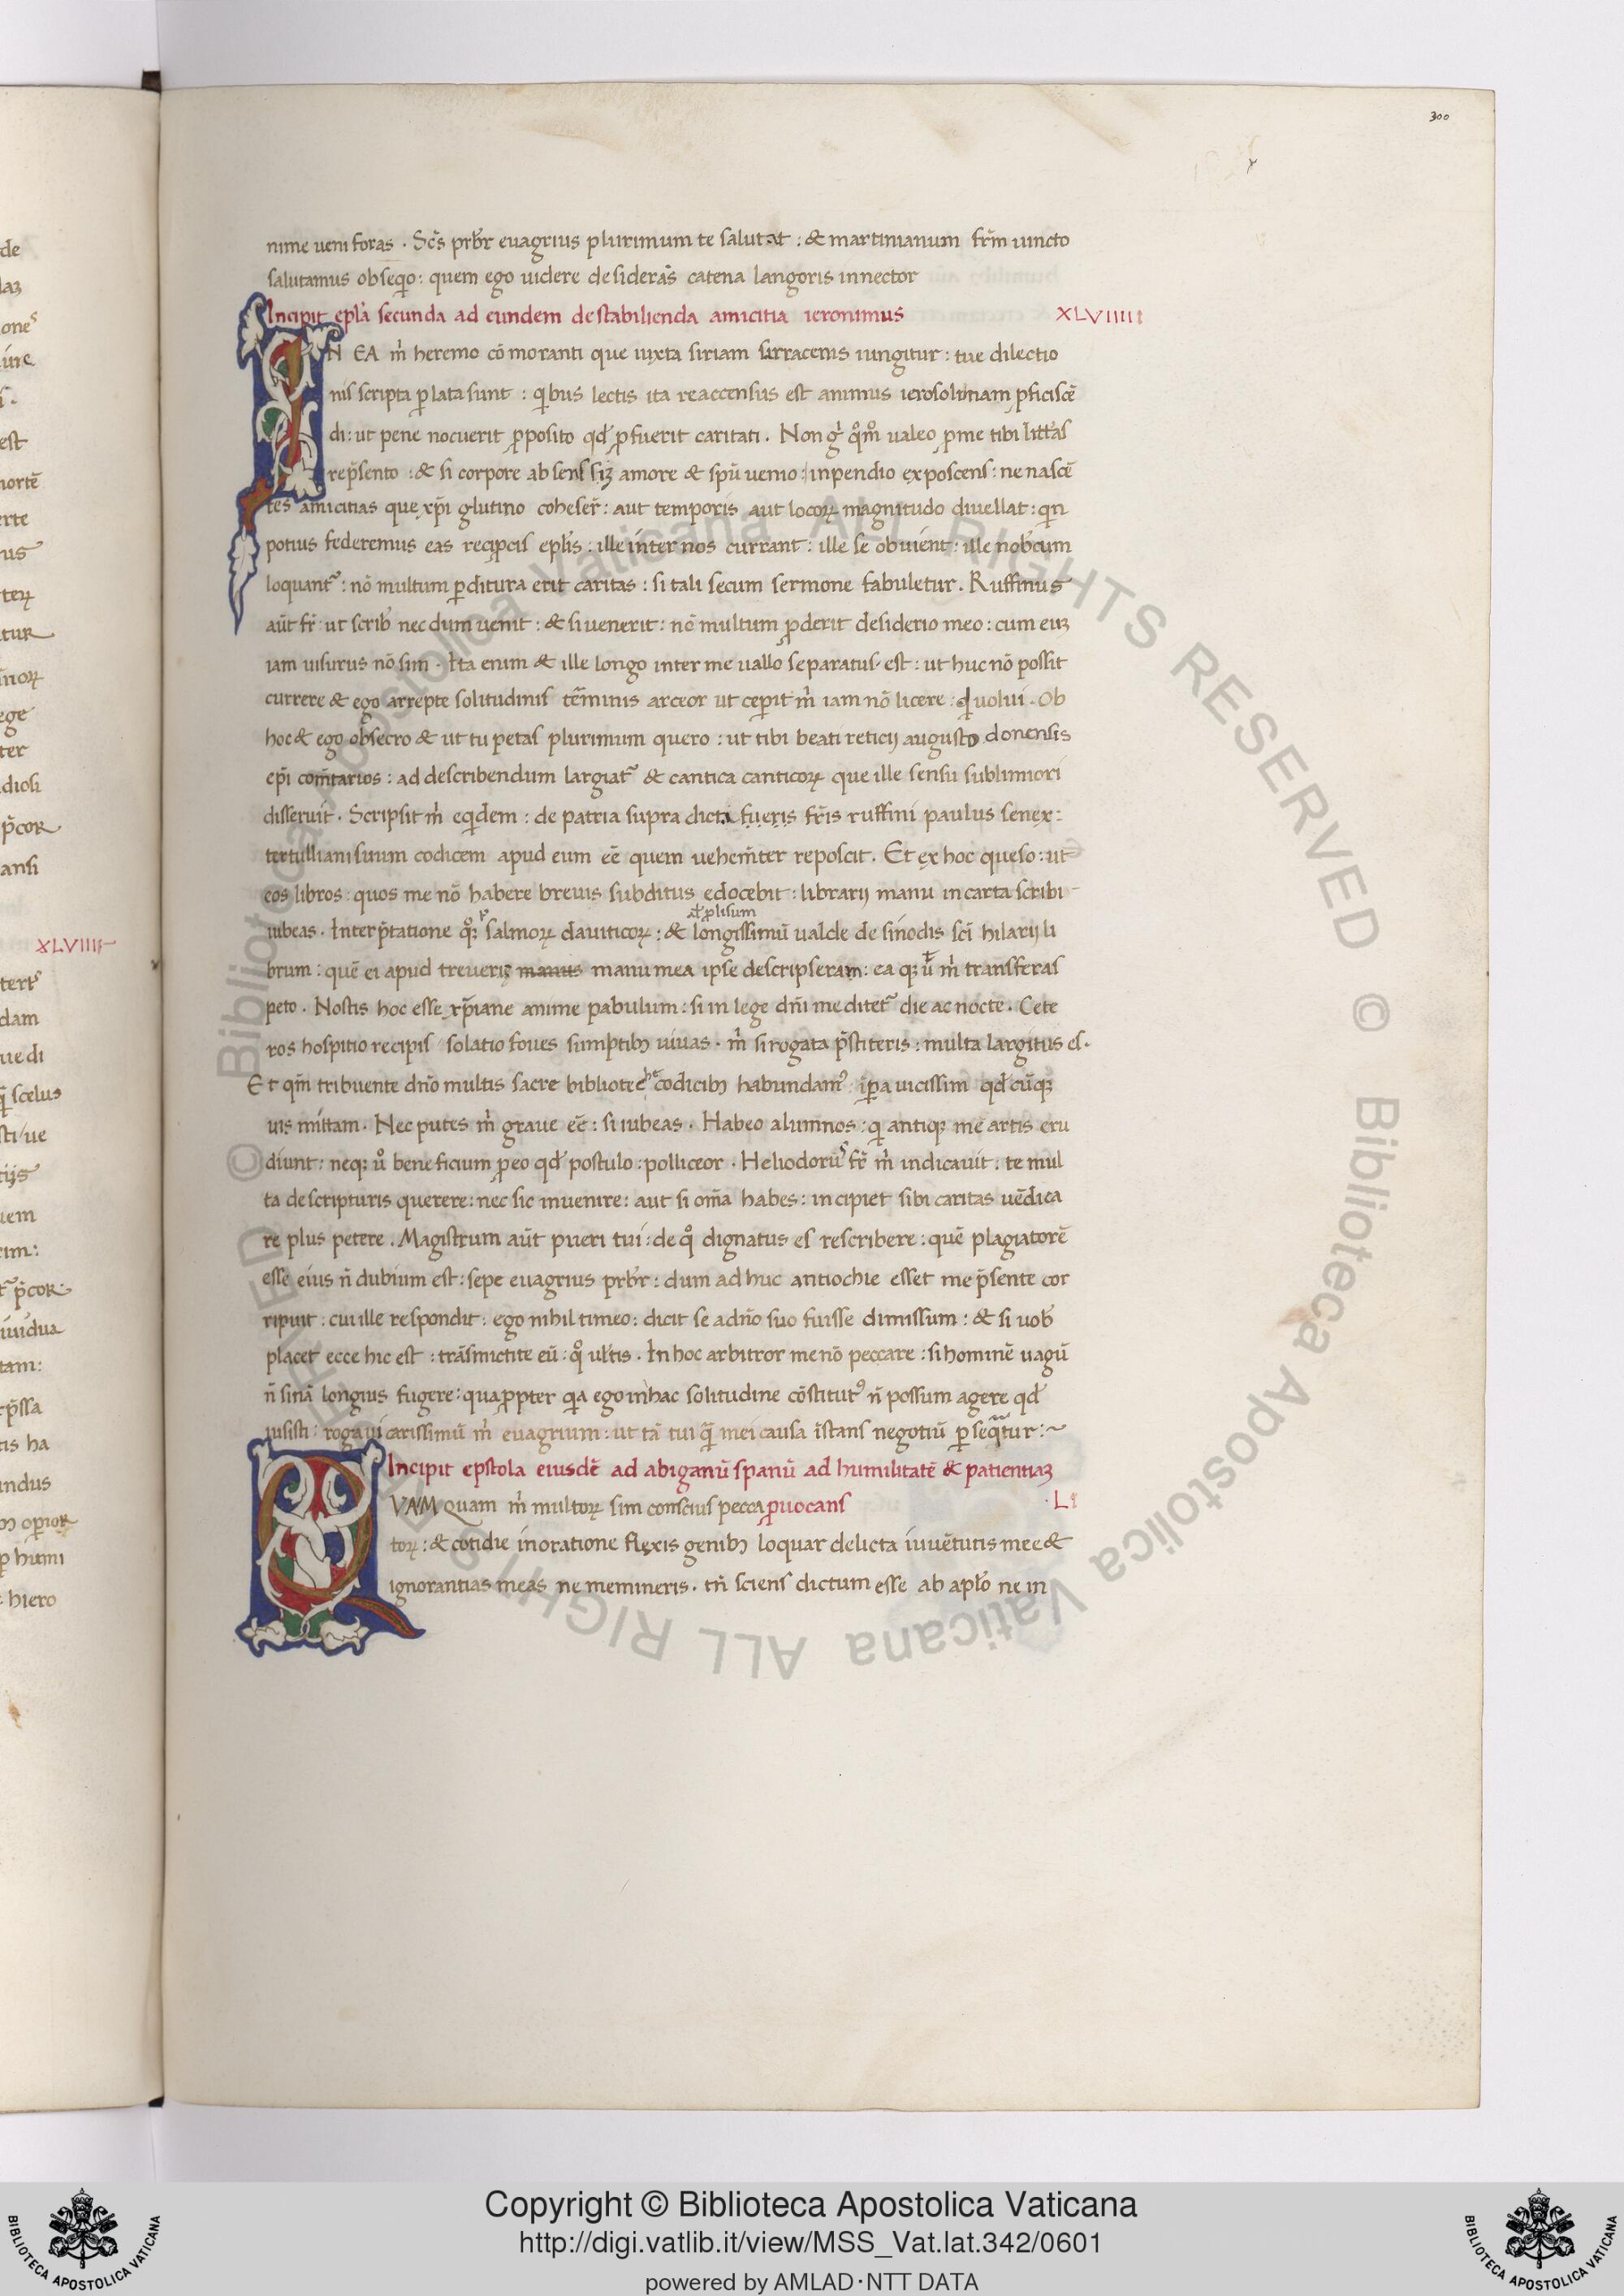 300
nime ueni foras . Sc̄s prb̄r euagrius plurimum te salutat : & martinianum fr̄m uincto
salutamus obseqio : quem ego uidere desiderās catena langoris innector
Incipit epl̄a secunda ad eundem de stabilienda amicitia ieronimus XLVIIIII
IN EA m̄ heremo cō moranti que iuxta siriam sarracenis iungitur : tue dilectio
nis scripta ꝑlata sunt : qibus lectis ita reaccensus est animus ierosolimam ꝓficiscē
di : ut pene nocuerit ꝓposito qd̄ ꝓfuerit caritati . Non gͥ qͫo ualeo ꝑ me tibi litt̄as
rep̄sento : & si corpore absens sꝫ amore & sp̄u uenio : inpendio exposcens : ne nascē
tes amicitias que xp̄i glutino coheser̄ : aut temporis aut locoꝝ magnitudo diuellat : qin
potius federemus eas reciꝓcis epl̄is : ille inter nos currant : ille se obuient : ille nob̄cum
loquant᷑ : nō multum ꝑditura erit caritas : si tali secum sermone fabuletur . Ruffinus
aūt fr̄ : ut scrib̄ nec dum uenit : & si uenerit : nō multum ꝓderit desiderio meo : cum euꝫ
iam uisurus nō sim . Ita enim & ille longo inter me uallo separatus est : ut huc nō possit
currere & ego arrepte solitudinis tēminis arceor ut ceꝑit m̄ iam nō licere : qd uolui . Ob
hoc & ego obsecro & ut tu petas plurimum quero : ut tibi beati reticij augusto donensis
ep̄i com̄tarios : ad describendum largiat᷑ & cantica canticoꝝ que ille sensu sublimiori
disseruit . Scripsit m̄ eqidem : de patria supra dicta fueris fr̄is ruffini paulus senex :
tertulliani suum codicem apud eum eē quem uehem̄ter reposcit . Et ex hoc queso : ut
eos libros : quos me nō habere breuis subditus edocebit : librarij manu in carta scribi
iubeas . Interp̄tatione qoꝫ salmoꝝ dauiticoꝝ : & longissimū ualde de sinodis sc̄i hilarij li
p
al̄ ꝓlisum
brum : quē ei apud treueriꝫ manus manu mea ipse descripseram : ea qꝫ ū m̄ transferas
peto . Nostis hoc esse xp̄iane anime pabulum : si in lege dn̄i meditet᷑ die ac nocte . Cete
ros hospitio recipis solatio foues sumptibꝫ iuuas . m̄ si rogata p̄stiteris : multa largitus es .
Et qm̄ tribuente dn̄o multis sacre bibliotece codicibꝫ habundamꝰ : iꝑa uicissim qd̄ cūqꝫ
uis mittam . Nec putes m̄ graue eē : si iubeas . Habeo alumnos : qi antiqꝫ me artis eru
diunt : neqꝫ uͦ beneficium ꝓ eo qd̄ postulo : polliceor . Heliodorus fr̄ m̄ indicauit : te mul
ta de scripturis querere : nec sic inuenire : aut si om̄a habes : incipiet sibi caritas uēdica
re plus petere . Magistrum aūt pueri tui : de qͦ dignatus es rescribere : quē plagiatorē
esse eius n̄ dubium est : sepe euagrius prb̄r : dum ad huc antiochie esset me p̄sente cor
ripuit : cui ille respondit : ego nihil timeo : dicit se a dn̄o suo fuisse dimissum : & si uob̄
placet ecce hic est : trāsmictite eū : qͦ ul̄tis . In hoc arbitror me nō peccare : si hominē uagū
n̄ sinā longius fugere : quaꝓpter qia ego in hac solitudine cōstitutꝰ n̄ possum agere qd̄
iusisti : rogaui carissimū m̄ euagrium : ut tā tui qͣ̄ mei causa īstans negotiū ꝑsequatur :~
Incipit epstola eiusdē ad abiganū spanū ad humilitatē & patientiaꝫ
QVAM Quam m̄ multoꝝ sim conscius pecca ꝓuocans . L
toꝝ : & cotidie in oratione flexis genibꝫ loquar delicta iuuētutis mee &
ignorantias meas ne memineris . tn̄ sciens dictum esse ab apl̄o ne in
XLVIIII
© Biblioteca Apostolica Vaticana ALL RIGHTS RESERVED © Biblioteca Apostolica Vaticana ALL RIGHTS RESERVED
BIBLIOTECA APOSTOLICA VATICANA
Copyright © Biblioteca Apostolica Vaticana
http://digi.vatlib.it/view/MSS_Vat.lat.342/0601
powered by AMLAD·NTT DATA
BIBLIOTECA APOSTOLICA VATICANA